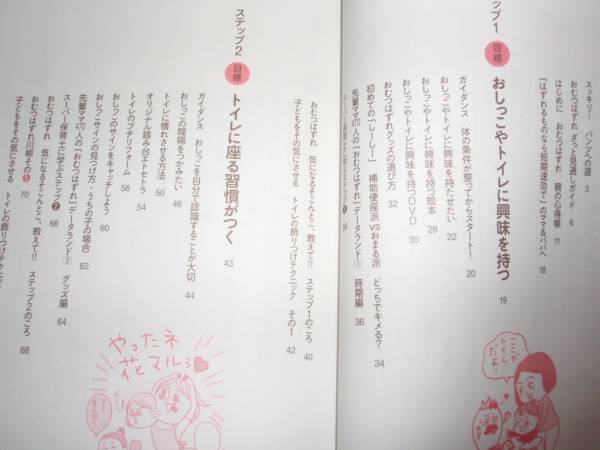 スッキリ! パンツへの道 3
おむつはずれ ざっと見通しガイド 6
はじめに おむつはずれ 親の心得帳 11
「はずれるものなら短期速効で」のママ&パパへ 16
ップ1 目標 おしっこやトイレに興味を持つ 19
ガイダンス 体の条件が整ってからスタート! 20
おしっこやトイレに興味を持たせたい 22
おしっこやトイレに興味を持つ絵本 28
おしっこやトイレに興味を持つDVD 30
おむつはずれグッズの選び方 32
初めての「しーしー」 補助便座派VSおまる派 どっちでキメる? 34
先輩ママ470人の「おむつはずれ」データランド① 時期編 36
スーパー保育士に学ぶステップ❶ 38
おむつはずれ 気になるそこんとこ、教えて!! ステップ1のころ 40
子どもをその気にさせる トイレの飾りつけテクニック その1 42
ステップ2 目標 トイレに座る習慣がつく 43
ガイダンス おしっこを自分で認識することが大切 44
おしっこの間隔をつかみたい 46
トイレに慣れさせる方法 50
オリジナル踏み台エトセトラ 54
トイレのプチリフォーム 56
おしっこのサインをキャッチしよう
おしっこサインの見つけ方・うちの子の場合 60
先輩ママ470人の「おむつはずれ」データランド② グッズ編 64
62
スーパー保育士に学ぶステップ❷ 66
おむつはずれ 気になるそこんとこ、教えて!! ステップ2のころ 68
おむつはずれ川柳その❶ 70
子どもをその気にさせる トイレの飾りつけテクニック
やったネ
花マルっ
ここが
トイレ
だよ!